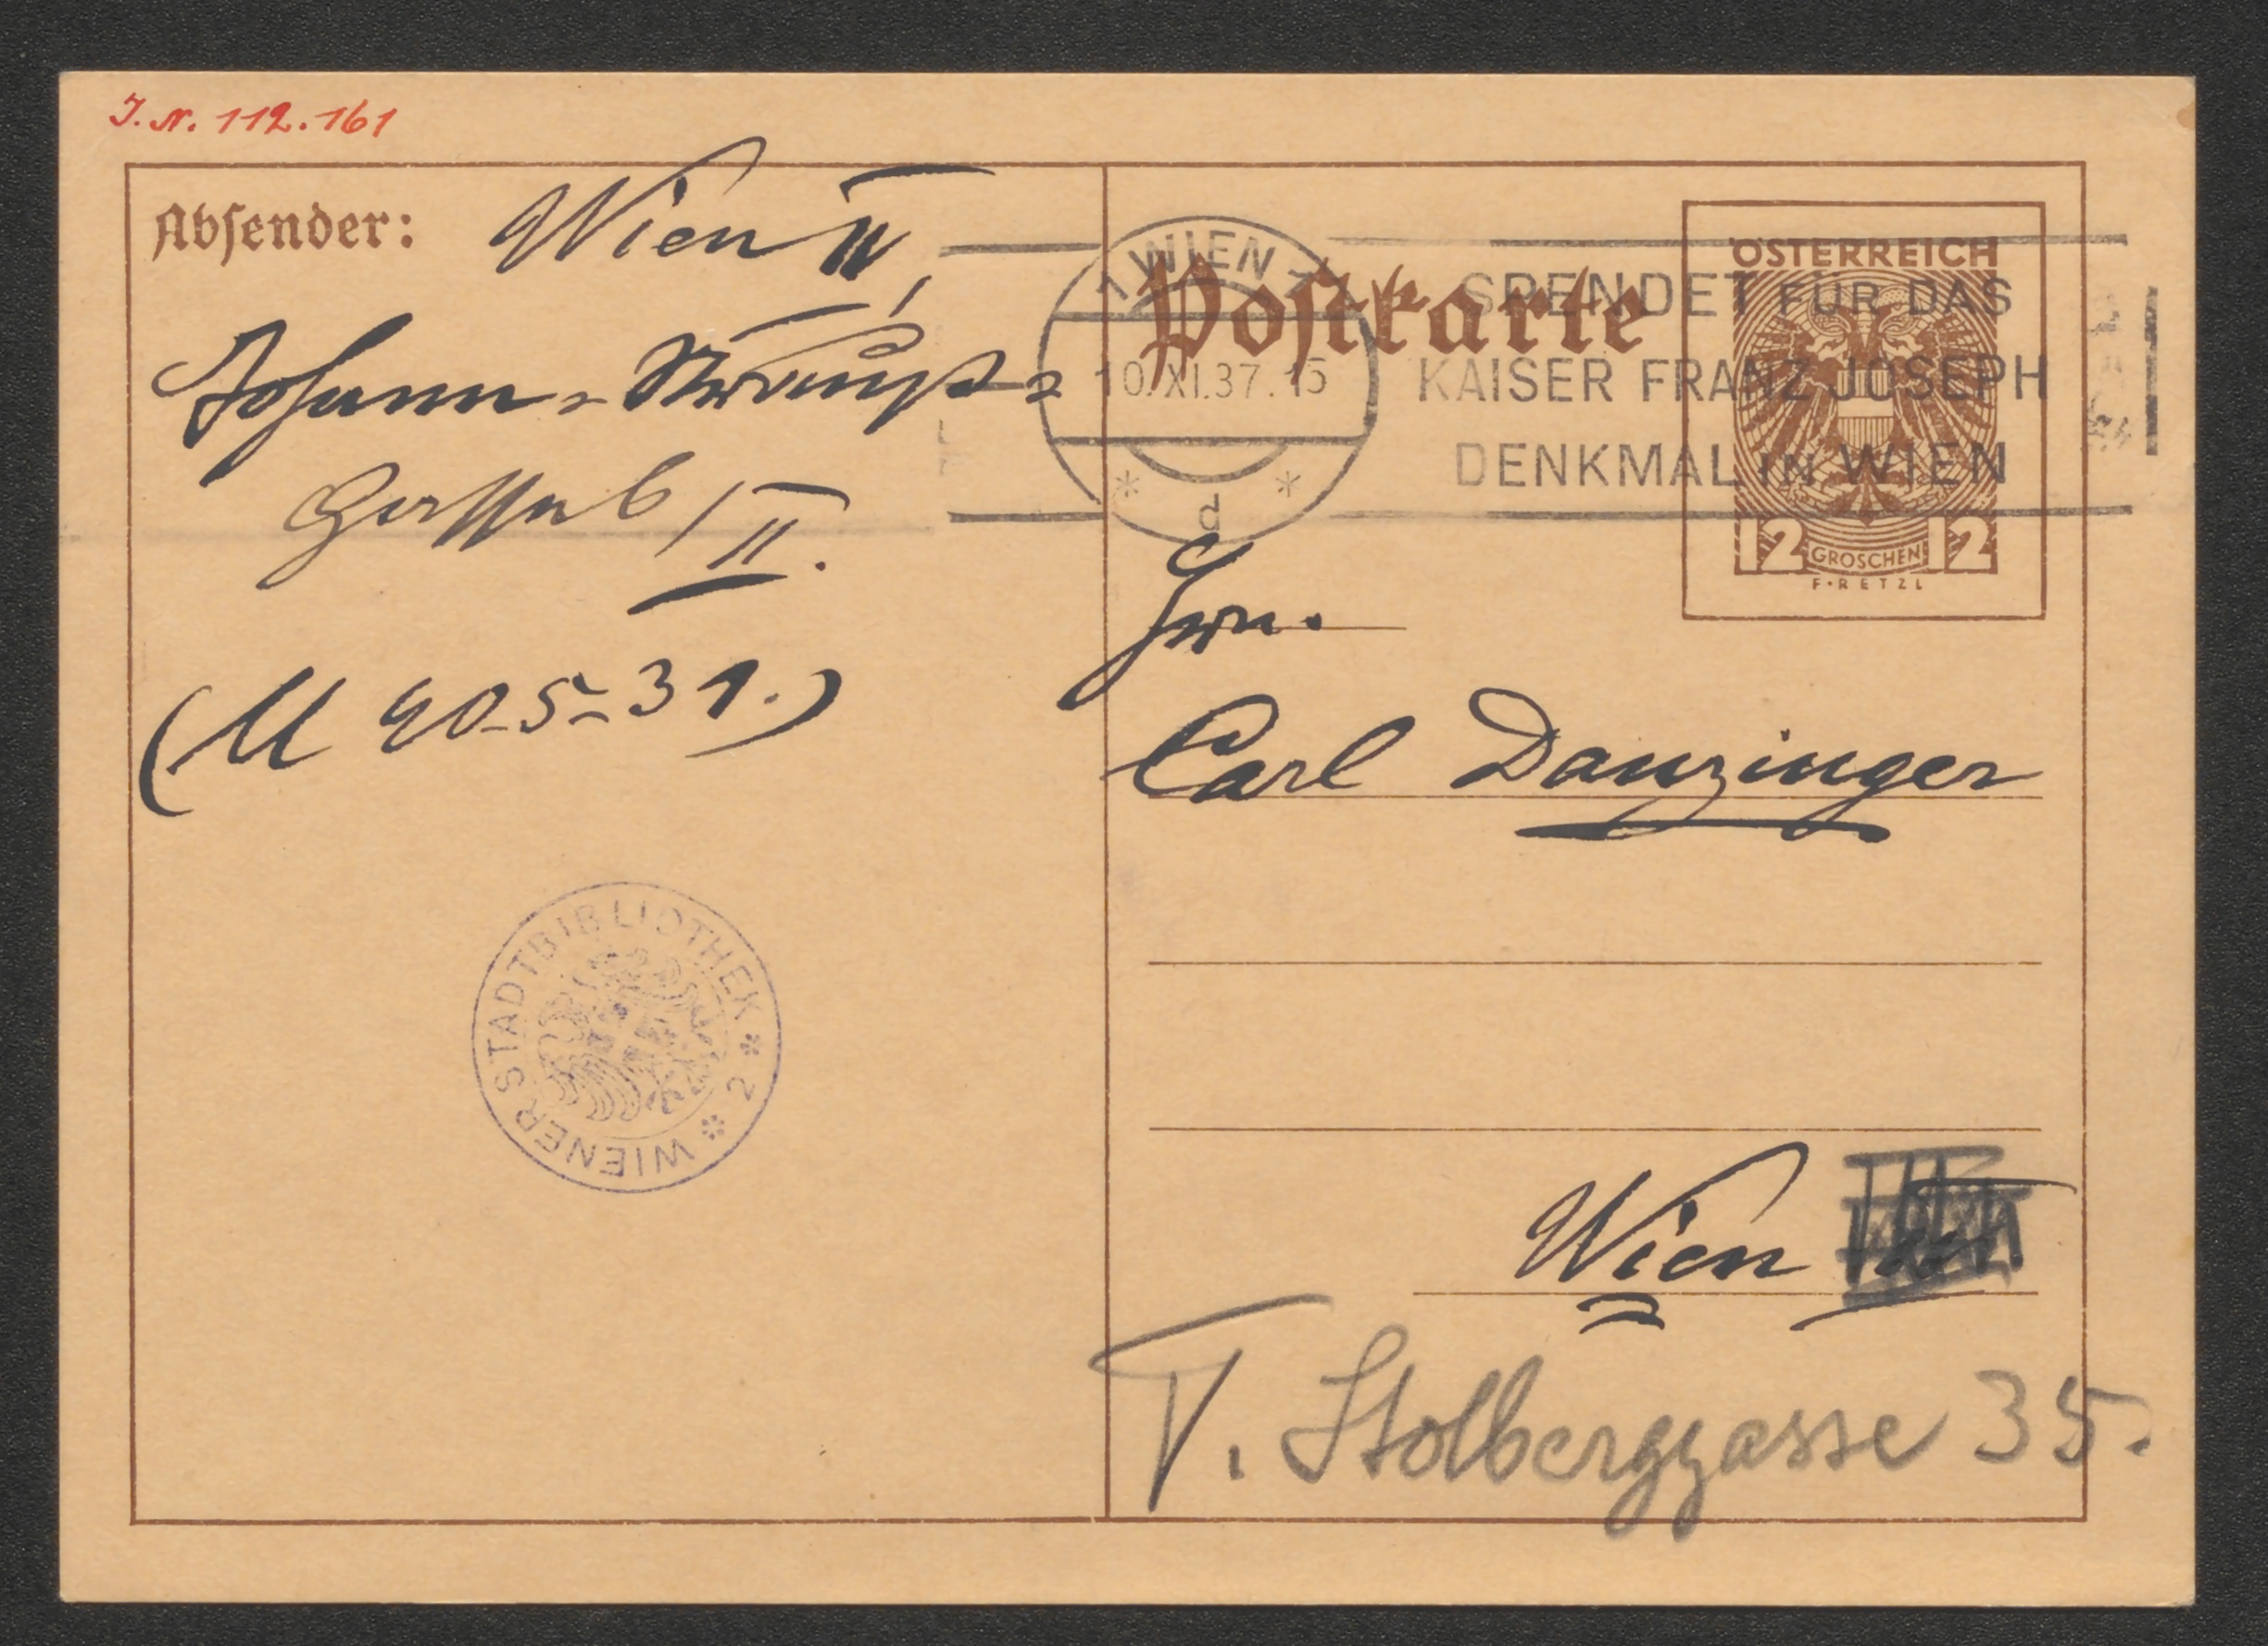 J. N. 112.161
Absender: Wien IV,
Johann-Strauß-
Gasse 6/II.
(U 40-5-31.)
WIENER STADTBIBLIOTHEK * 2 *
Postkarte
WIEN
10.XI.37.15
* d *
SPENDET FÜR DAS
KAISER FRANZ JOSEPH
DENKMAL IN WIEN
ÖSTERREICH
12 GROSCHEN 12
F·RETZL
Hrn.
Carl Danzinger
Wien
V. Stolberggasse 35.